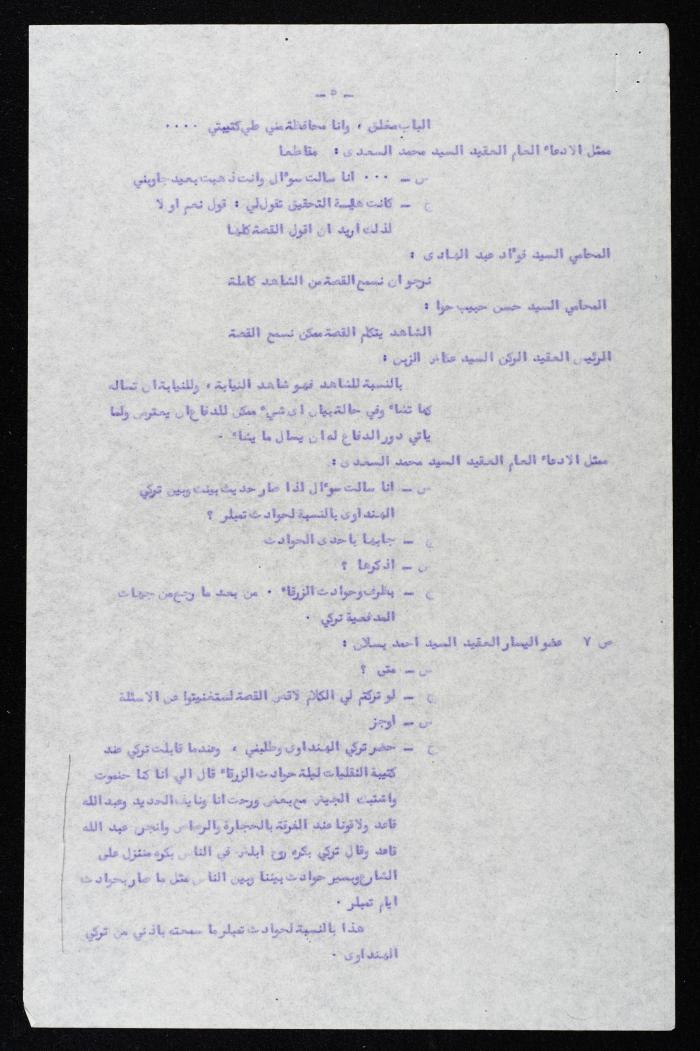 — ٥ —
الباب مغلق ، وانا محافظة مني على كتيبتي ....
ممثل الادعاء العام العقيد السيد محمد السعدى : مقاطعا
س — ... انا سالت سوءال وانت ذهبت بعيد جاوبني
ج — كانت هيئة التحقيق تقول لي : قول نعم او لا
لذلك اريد ان اقول القصة كلها
المحامي السيد فوءاد عبد الهادى :
نرجو ان نسمع القصة من الشاهد كاملة
المحامي السيد حسن حبيب حوا :
الشاهد يتكلم القصة ممكن نسمع القصة
الرئيس العقيد الركن السيد عكاش الزبن :
بالنسبة للشاهد فهو شاهد النيابة ، وللنيابة ان تساله
كما تشاء وفي حالة بيان اى شيء ممكن للدفاع ان يعترض ولما
ياتي دور الدفاع له ان يسال ما يشاء .
ممثل الادعاء العام العقيد السيد محمد السعدى :
س — انا سالت سوءال اذا صار حديث بينك وبين تركي
الهنداوى بالنسبة لحوادث تمبلر ؟
ج — جابها باحدى الحوادث
س — اذكرها ؟
ج — بظرف وحوادث الزرقاء . من بعد ما رجع من جهات
المدفعية تركي .
ص ٧ عضو اليسار العقيد السيد احمد يسلان :
س — متى ؟
ج — لو تركتم لي الكلام لاقص القصة لستغنيتوا عن الاسئلة
س — اوجز
ج — حضر تركي الهنداوى وطلبني ، وعندما قابلت تركي عند
كتيبة النقليات ليلة حوادث الزرقاء قال الي انا كنا حنموت
واشتبك الجيش مع بعض ورحت انا ونايف الحديد وعبد الله
قاعد ولاقونا عند الفرقة بالحجارة والرصاص وانجرح عبد الله
قاعد وقال تركي بكره روح ابلش في الناس بكره منتزل على
الشارع وبصير حوادث بيننا وبين الناس مثل ما صار بحوادث
ايام تمبلر .
هذا بالنسبة لحوادث تمبلر ما سمعته باذني من تركي
الهنداوى .